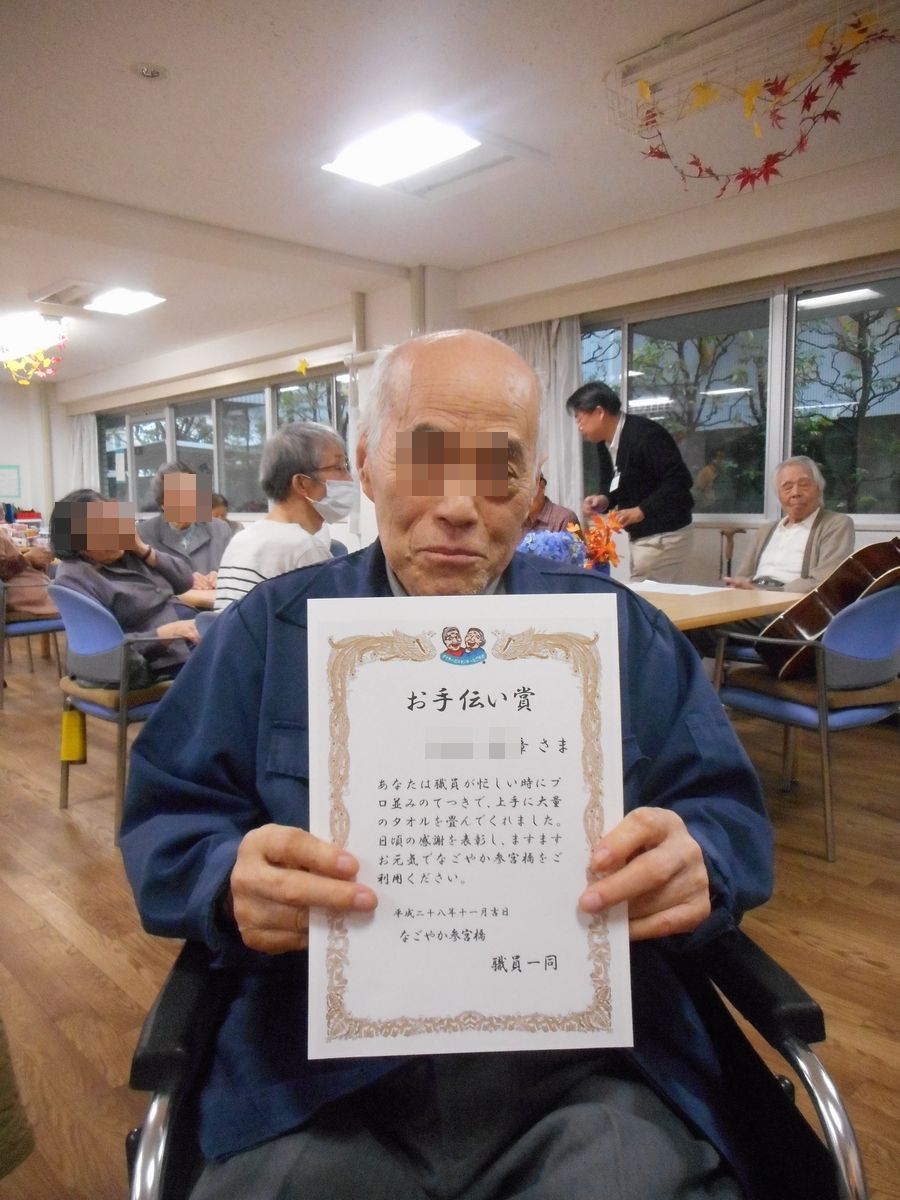 お手伝い賞
幸さま
あなたは職員が忙しい時にプ
ロ並みのてつきで、上手に大量
のタオルを畳んでくれました。
日頃の感謝を表彰し、ますます
お元気でなごやか参宮橋をご
利用ください。
平成二十八年十一月吉日
なごやか参宮橋
職員一同